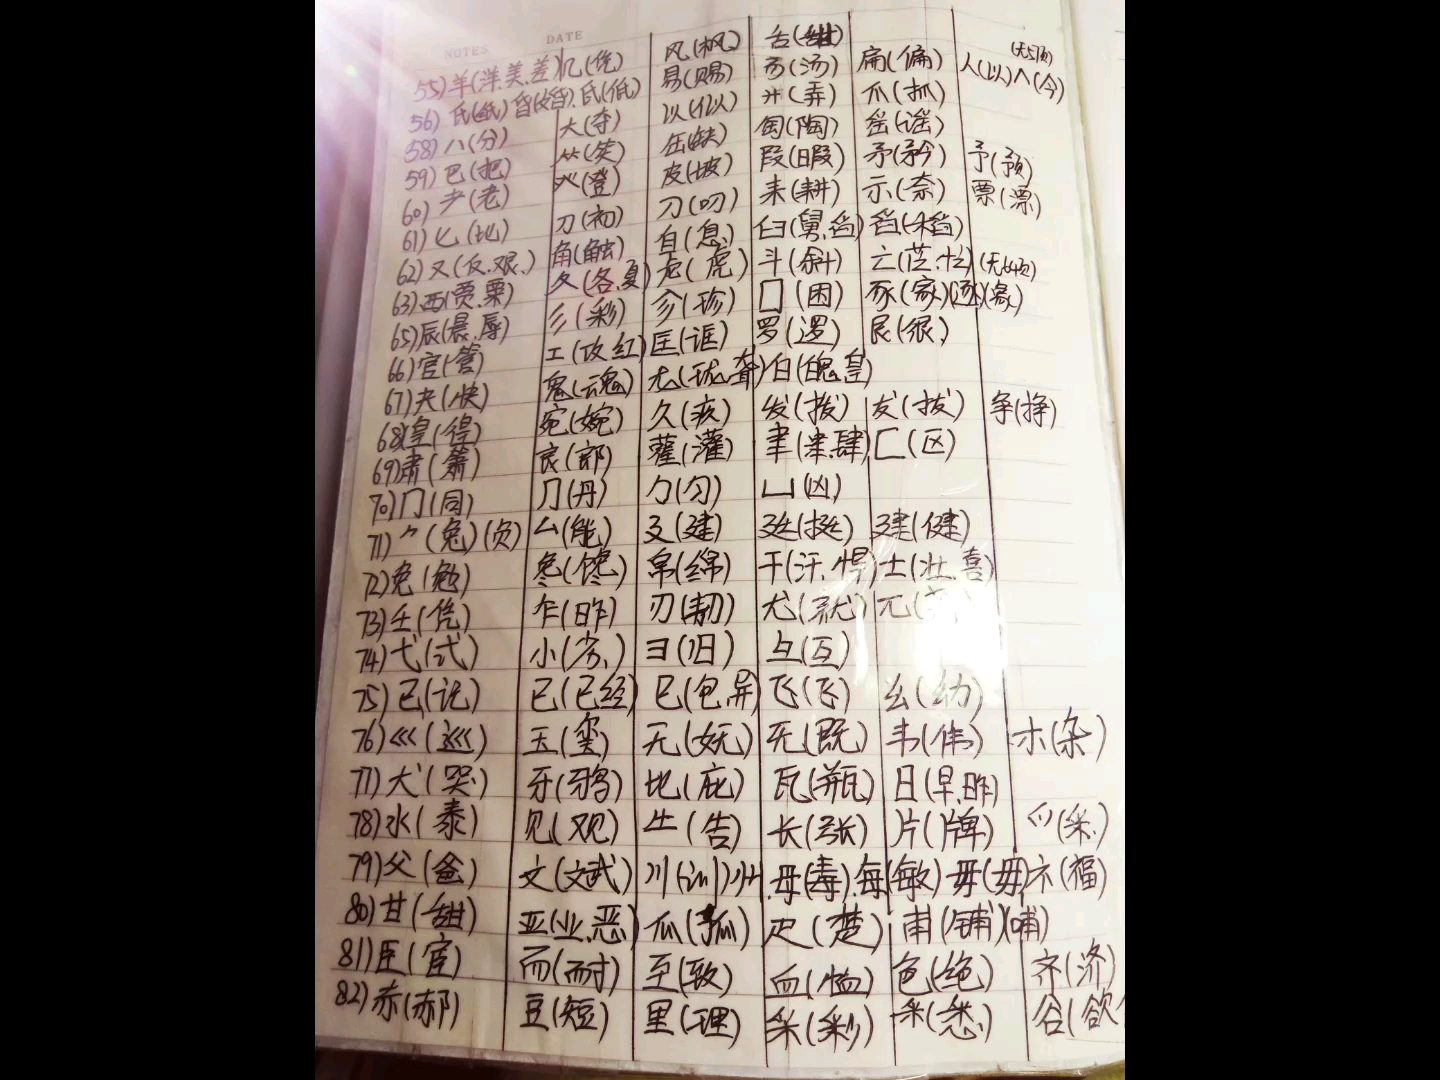 NOTES DATE
55)羊(洋.美.差) 几(凭) 风(枫) 舌(甜)
56)氏(纸) 昏(婚).氐(低) 易(赐) 汤(汤) 扁(偏) 人(以)人(今) (无与页)
58)八(分) 大(夺) 以(似) 廾(弄) 爪(抓)
59)巴(把) 竹(笑) 缶(缺) 匋(陶) 䍃(谣)
60)耂(老) 癶(登) 皮(坡) 叚(暇) 矛(矜) 予(预)
61)匕(比) 刀(初) 刁(叼) 耒(耕) 示(奈) 票(漂)
62)又(反.艰.) 角(触) 自(息) 臼(舅.舀) 舀(稻)
63)西(贾.粟) 夂(各.夏) 虍(虎) 斗(斜) 亡(茫.忙) (无如页)
65)辰(晨.辱) 彡(彩) 㐱(珍) 囗(困) 豕(家)(逐)(象)
66)官(管) 工(攻 红) 匡(诓) 罗(逻) 艮(很)
67)夬(快) 鬼(魂) 龙(珑.聋) 白(魄.皇)
68)皇(徨) 宛(婉) 久(疚) 发(拨) 犮(拔) 争(挣)
69)肃(箫) 良(郎) 雚(灌) 聿(津.肆) 匚(区)
70)冂(同) ⺆(丹) 勹(匀) 凵(凶)
71)⺈(兔)(负) 厶(能) 廴(建) 廷(挺) 建(健)
72)免(勉) 毚(馋) 帛(绵) 干(汗.悍) 士(壮.喜)
73)壬(凭) 乍(昨) 刃(韧) 尤(就) 兀
74)弋(式) 小(劣.) 彐(归) 彑(互)
75)己(记) 已(已经) 巳(包.异) 飞(飞) 幺(幼)
76)巛(巡) 玉(玺) 无(妩) 旡(既) 韦(伟) 朩(杂)
77)犬(哭) 牙(鸦) 比(庇) 瓦(瓶) 日(早.昨)
78)水(泰) 见(观) 牛(告) 长(张) 片(牌) 爫(采.)
79)父(爸) 文(斌) 川(训)州 母(毒).每(敏) 毋(毋) 礻(福)
80)甘(甜) 亚(业.恶) 瓜(孤) 疋(楚) 甫(铺)(哺)
81)臣(宦) 而(耐) 至(致) 血(恤) 色(绝) 齐(济)
82)赤(郝) 豆(短) 里(理) 采(彩) 釆(悉) 谷(欲